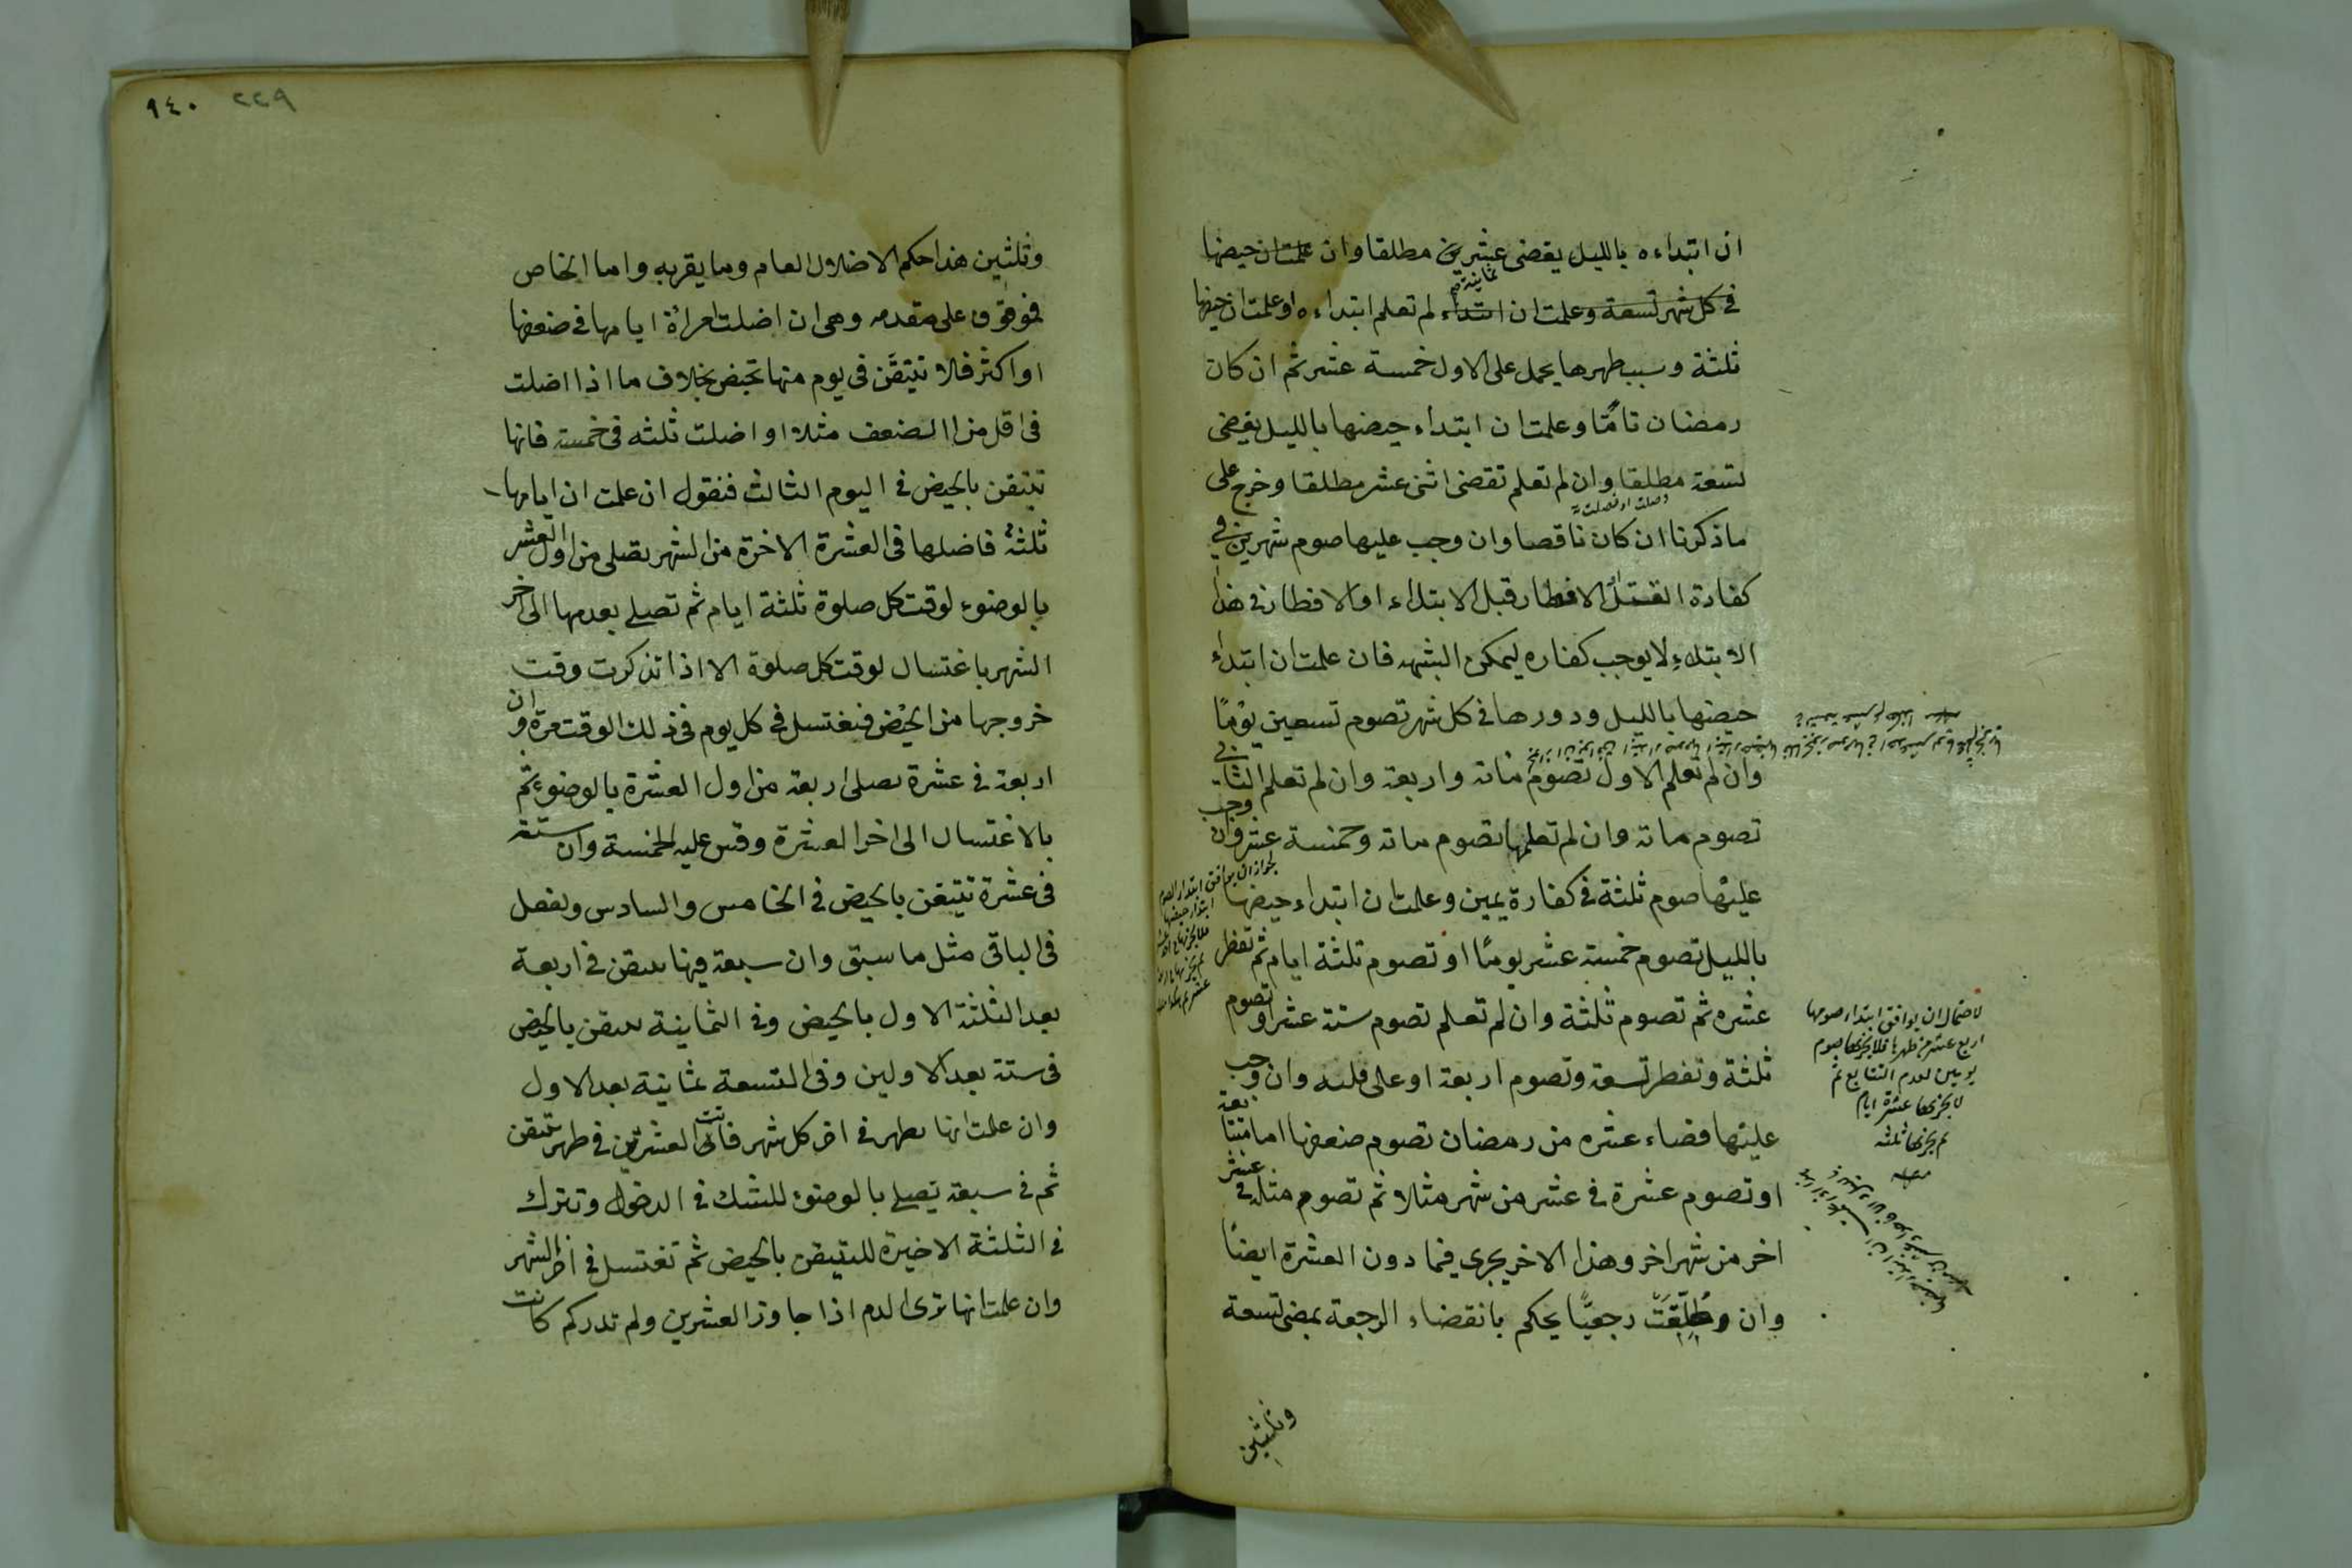 ان ابتداءه بالليل يقضى عشرين مطلقا وان علمت ان حيضها
فى كل شهر تسعة وعلمت ان ابتداءه لم تعلم ابتداءه او علمت ان حيضها
ثلثة وسبب طهرها يحمل على الاول خمسة عشر ثم ان كان
رمضان تامًّا وعلمت ان ابتداء حيضها بالليل يقضى
تسعة مطلقا وان لم تعلم تقضى اثنى عشر مطلقا وخرج على
وصلت او فصلت
ما ذكرنا ان كان ناقصا وان وجب عليها صوم شهرين فى
كفارة القتل الافطار قبل الابتداء اذ الافطار فى هذا
الابتلاء لا يوجب كفاره ليمكن الشبهه فان علمت ان ابتداء
حيضها بالليل ودورها فى كل شهر تصوم تسعين يومًا
وان لم تعلم الاول تصوم مائة واربعة وان لم تعلم الثانى
تصوم مائة وان لم تعلمهما تصوم مائة وخمسة عشر وان وجب
عليها صوم ثلثة فى كفارة يمين وعلمت ان ابتداء حيضها
بالليل تصوم خمسة عشر يومًا او تصوم ثلثة ايام ثم تفطر
عشره ثم تصوم ثلثة وان لم تعلم تصوم ستة عشر او تصوم
ثلثة وتفطر تسعة وتصوم اربعة او على قلبه وان وجب
عليها قضاء عشره من رمضان تصوم ضعفها اما متتابعة
او تصوم عشرة فى عشر من شهر مثلا ثم تصوم مثله فى عشر
اخر من شهر اخر وهذا الاخر يجرى فيما دون العشرة ايضًا
وان طُلِّقَتْ رجعيًّا يحكم بانقضاء الرجعة بمضى تسعة
وثلثين
لجواز ان يوافق ابتداء الصوم
ابتداء حيضها
لاحتمال ان يوافق ابتداء صومها
اربع عشر من طهرها فلا يجزئها صوم
يومين لعدم التتابع ثم
لا يجزئها عشرة ايام
ثم يجزئها ثلثه
٩٤٠ ٢٢٩
وثلثين هذا حكم الاضلال العام وما يقرب به واما الخاص
فموقوف على مقدمه وهى ان اضلت امرأة ايامها فى ضعفها
او اكثر فلا تتيقّن فى يوم منها بحيض بخلاف ما اذا اضلت
فى اقل من الضعف مثلا او اضلت ثلثه فى خمسة فانها
تتيقن بالحيض فى اليوم الثالث فنقول ان علمت ان ايامها
ثلثة فاضلها فى العشرة الاخرة من الشهر تصلى من اول العشر
بالوضوء لوقت كل صلوة ثلثة ايام ثم تصلى بعدها الى اخر
الشهر باغتسال لوقت كل صلوة الا اذا تذكرت وقت
خروجها من الحيض فتغتسل فى كل يوم فى ذلك الوقت مرة وان
اربعة فى عشرة تصلى اربعة من اول العشرة بالوضوء ثم
بالاغتسال الى اخر العشرة وقس عليه الخمسة وان ستة
فى عشرة تتيقن بالحيض فى الخامس والسادس وتفعل
فى الباقى مثل ما سبق وان سبعة فيها تتيقن فى اربعة
بعد الثلثة الاول بالحيض وفى الثمانية تتيقن بالحيض
فى ستة بعد الاولين وفى التسعة ثمانية بعد الاول
وان علمت انها تطهر فى اخر كل شهر فالى العشرين فى طهر تتيقن
ثم فى سبعة تصلى بالوضوء للشك فى الدخول وتترك
فى الثلثة الاخيرة للتيقن بالحيض ثم تغتسل فى اخر الشهر
وان علمت انها ترى الدم اذا جاوز العشرين ولم تدر كم كانت